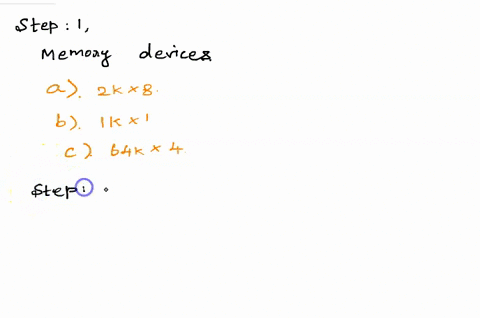 Step : 1,
Memory devices
a). 2k × 8.
b). 1k × 1
c). 64k × 4
Step :